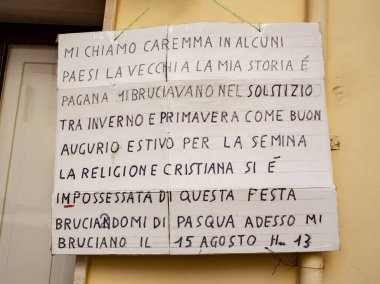 MI CHIAMO CAREMMA IN ALCUNI
PAESI LA VECCHIA LA MIA STORIA É
PAGANA MI BRUCIAVANO NEL SOLSTIZIO
TRA INVERNO E PRIMAVERA COME BUON
AUGURIO ESTIVO PER LA SEMINA
LA RELIGIONE CRISTIANA SI É
IMPOSSESSATA DI QUESTA FESTA
BRUCIANDOMI DI PASQUA ADESSO MI
BRUCIANO IL 15 AGOSTO 13